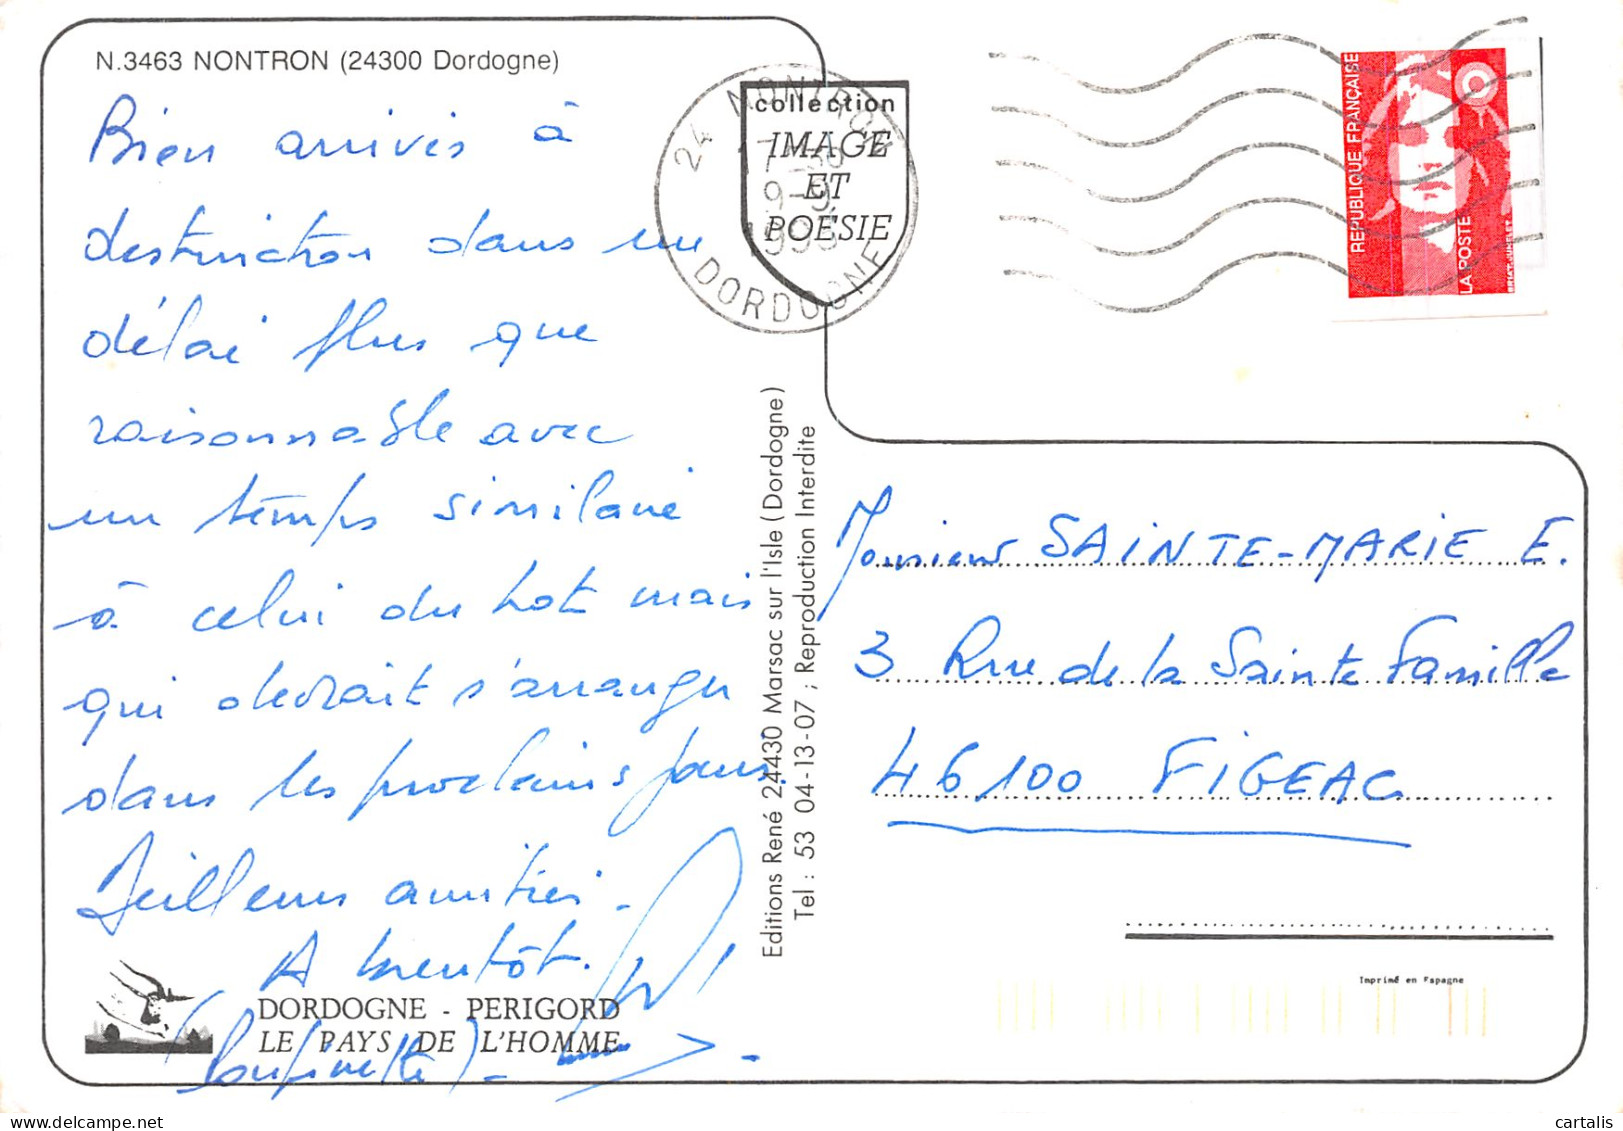 N.3463 NONTRON (24300 Dordogne)
Bien arrivés à
destination dans un
délai plus que
raisonnable avec
un temps similaire
à celui du Lot mais
qui devrait s'arranger
dans les prochains jours.
Meilleures amitiés.
A bientôt.
DORDOGNE - PERIGORD
LE PAYS DE L'HOMME
collection
IMAGE
ET
POÉSIE
24 NONTRON
DORDOGNE
Editions René 24430 Marsac sur l'Isle (Dordogne)
Tel : 53 04-13-07 ; Reproduction Interdite
REPUBLIQUE FRANÇAISE
LA POSTE
Monsieur SAINTE-MARIE E.
3 Rue de la Sainte Famille
46100 FIGEAC
Imprimé en Espagne
cartalis